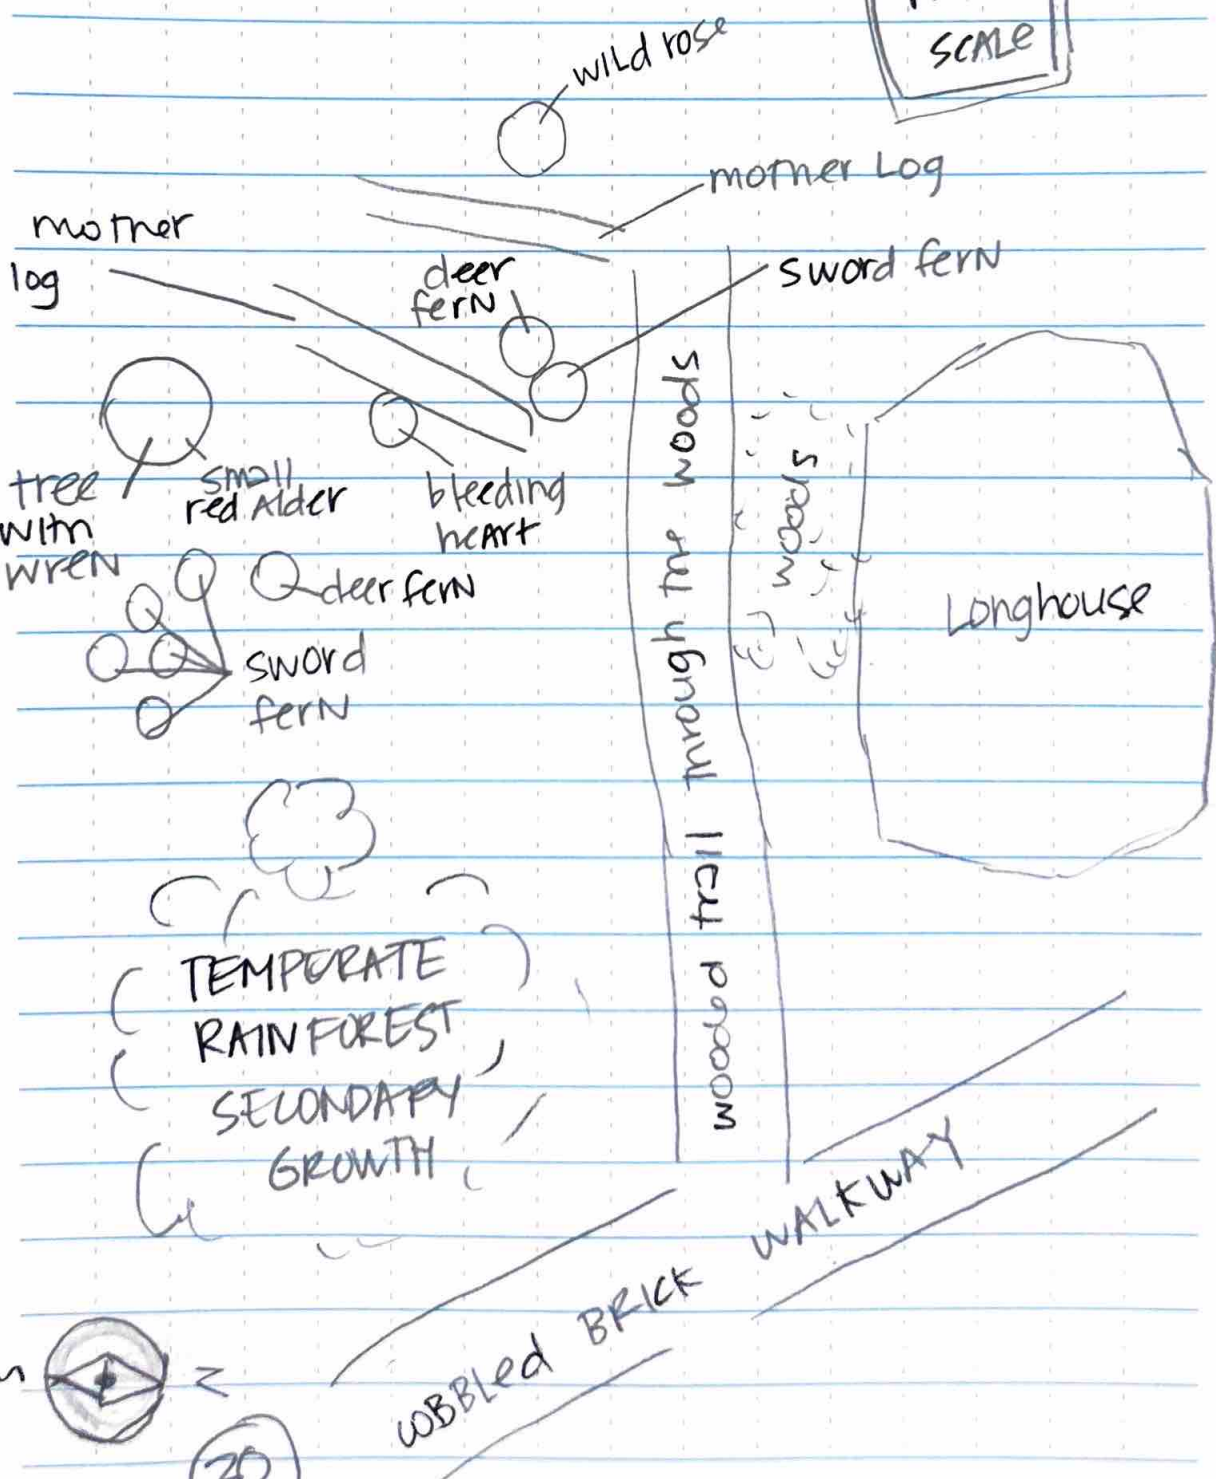 SCALE
wild rose
mother Log
mother
log
deer
ferN
sword ferN
tree
with
wreN
small
red Alder
bleeding
heArt
deer ferN
sword
ferN
wooded trail through the woods
woods
Longhouse
TEMPERATE
RAINFOREST
SECONDARY
GROWTH
COBBLed BRICK WALKWAY
S
N
20